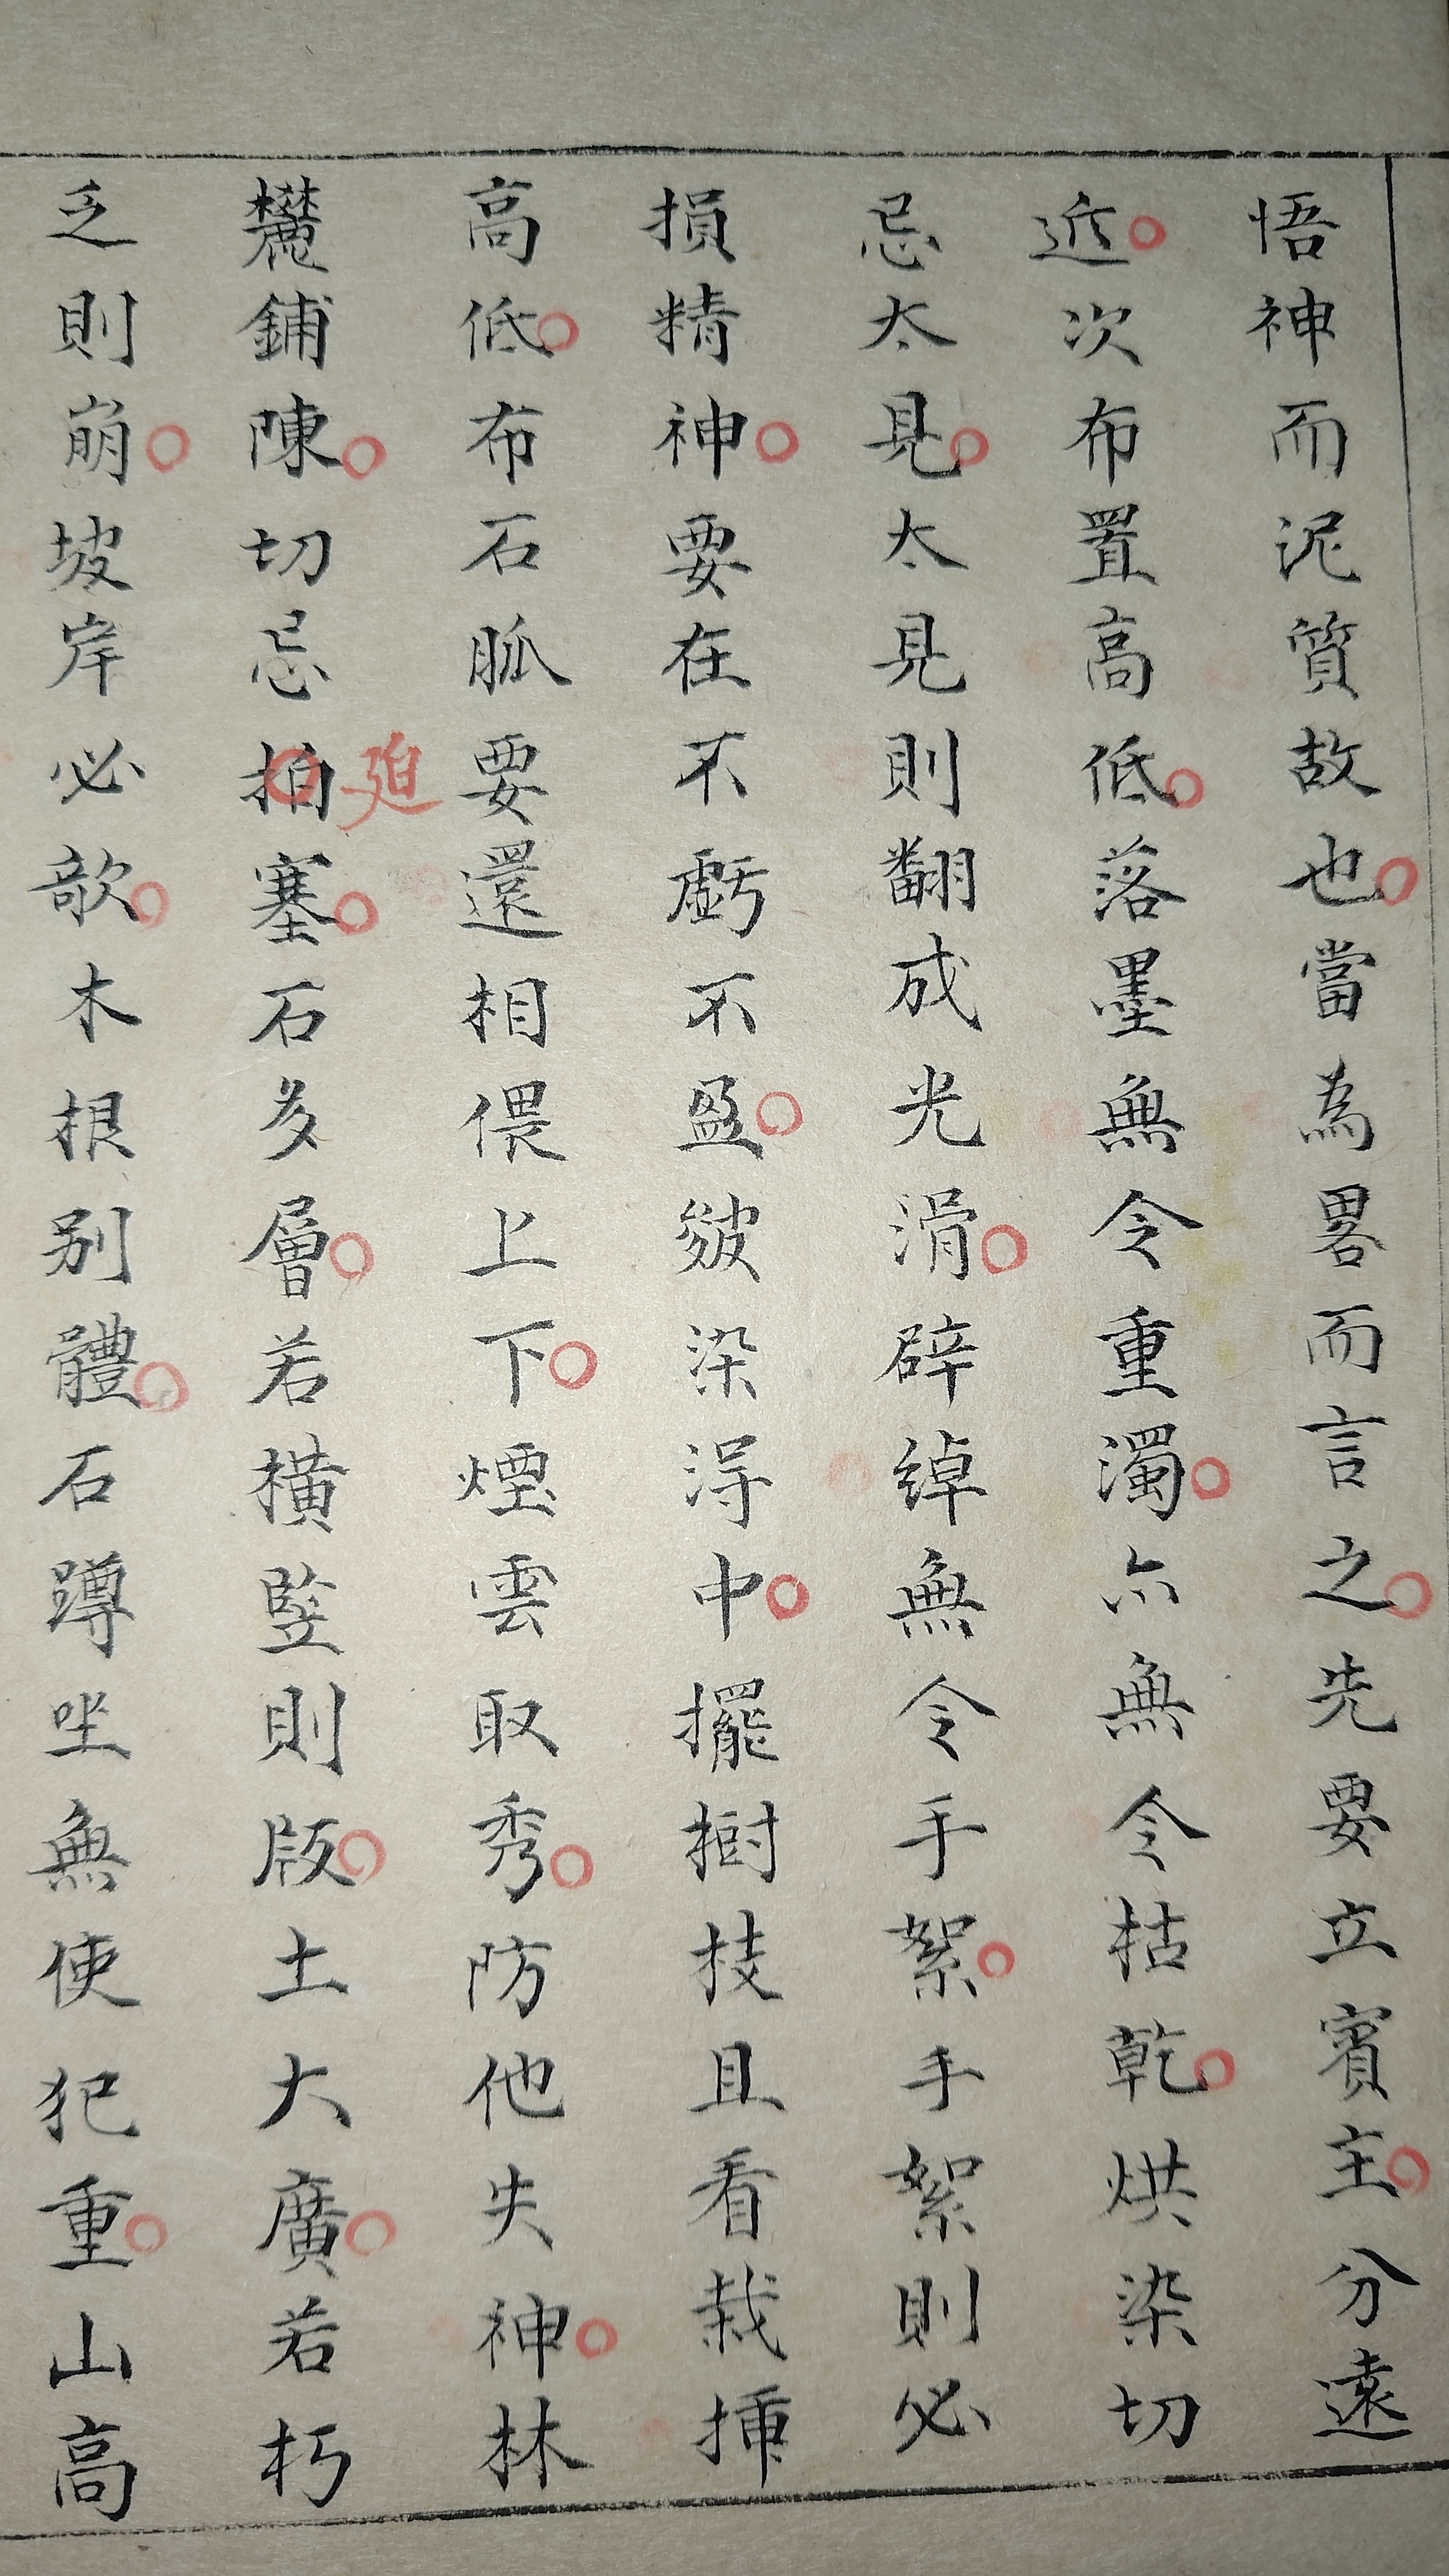 悟神而泥質故也。當為畧而言之。先要立賓主。分遠
近。次布置高低。落墨無令重濁。亦無令枯乾。烘染切
忌太見。太見則翻成光滑。辟綽無令手絮。手絮則必
損精神。要在不虧不盈。皴染得中。擺樹枝且看栽揷
高低。布石脈要還相偎上下。煙雲取秀。防他失神。林
麓鋪陳。切忌拍迫塞。石多層。若橫竪則版。土大廣。若朽
乏則崩。坡岸必欹。木根別體。石蹲坐無使犯重。山高